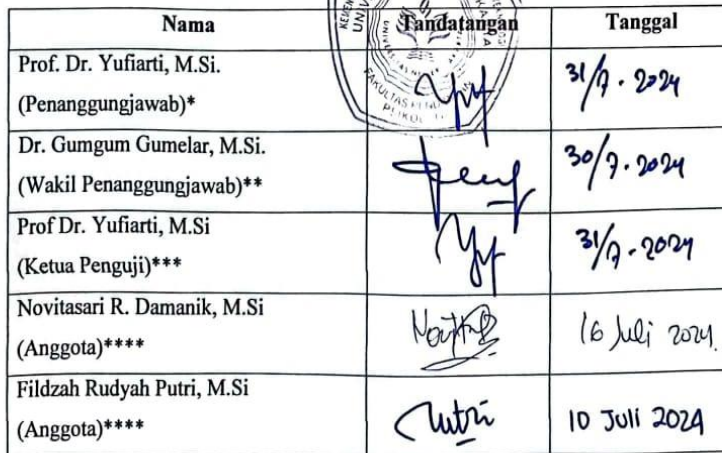 Nama Tandatangan Tanggal
Prof. Dr. Yufiarti, M.Si.
(Penanggungjawab)*
31/7 - 2024
Dr. Gumgum Gumelar, M.Si.
(Wakil Penanggungjawab)**
30/7 - 2024
Prof Dr. Yufiarti, M.Si
(Ketua Penguji)***
31/7 - 2024
Novitasari R. Damanik, M.Si
(Anggota)****
16 Juli 2024.
Fildzah Rudyah Putri, M.Si
(Anggota)****
Putri
10 Juli 2024